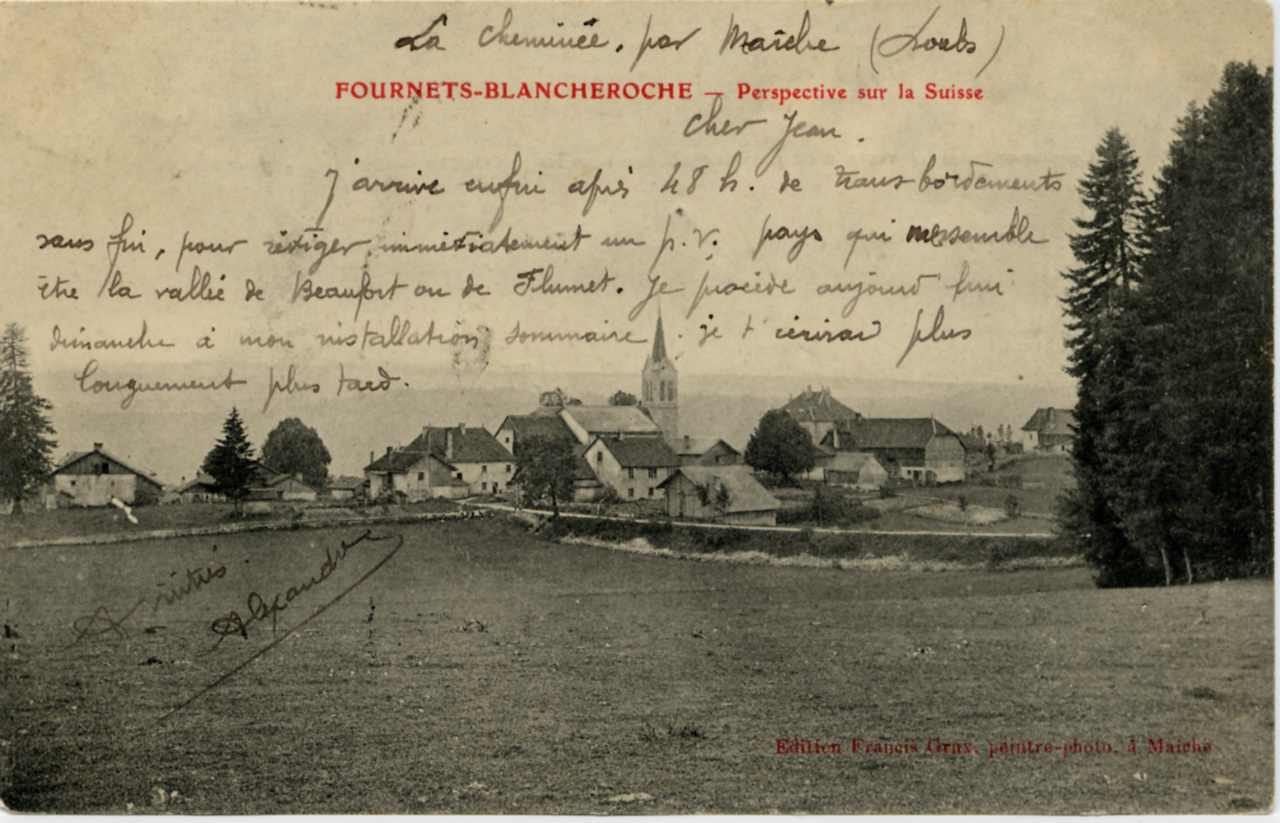 La Cheminée, par Maîche (Doubs)
FOURNETS-BLANCHEROCHE — Perspective sur la Suisse
cher Jean.
J'arrive enfin après 48 h. de transbordements
sans fin, pour rédiger immédiatement un p.v. pays qui me semble
être la vallée de Beaufort ou de Flumet. Je procède aujourd'hui
dimanche à mon installation sommaire. je t'écrirai plus
longuement plus tard.
Amitiés.
Alexandre
Edition Francis Grux, peintre-photo, à Maiche